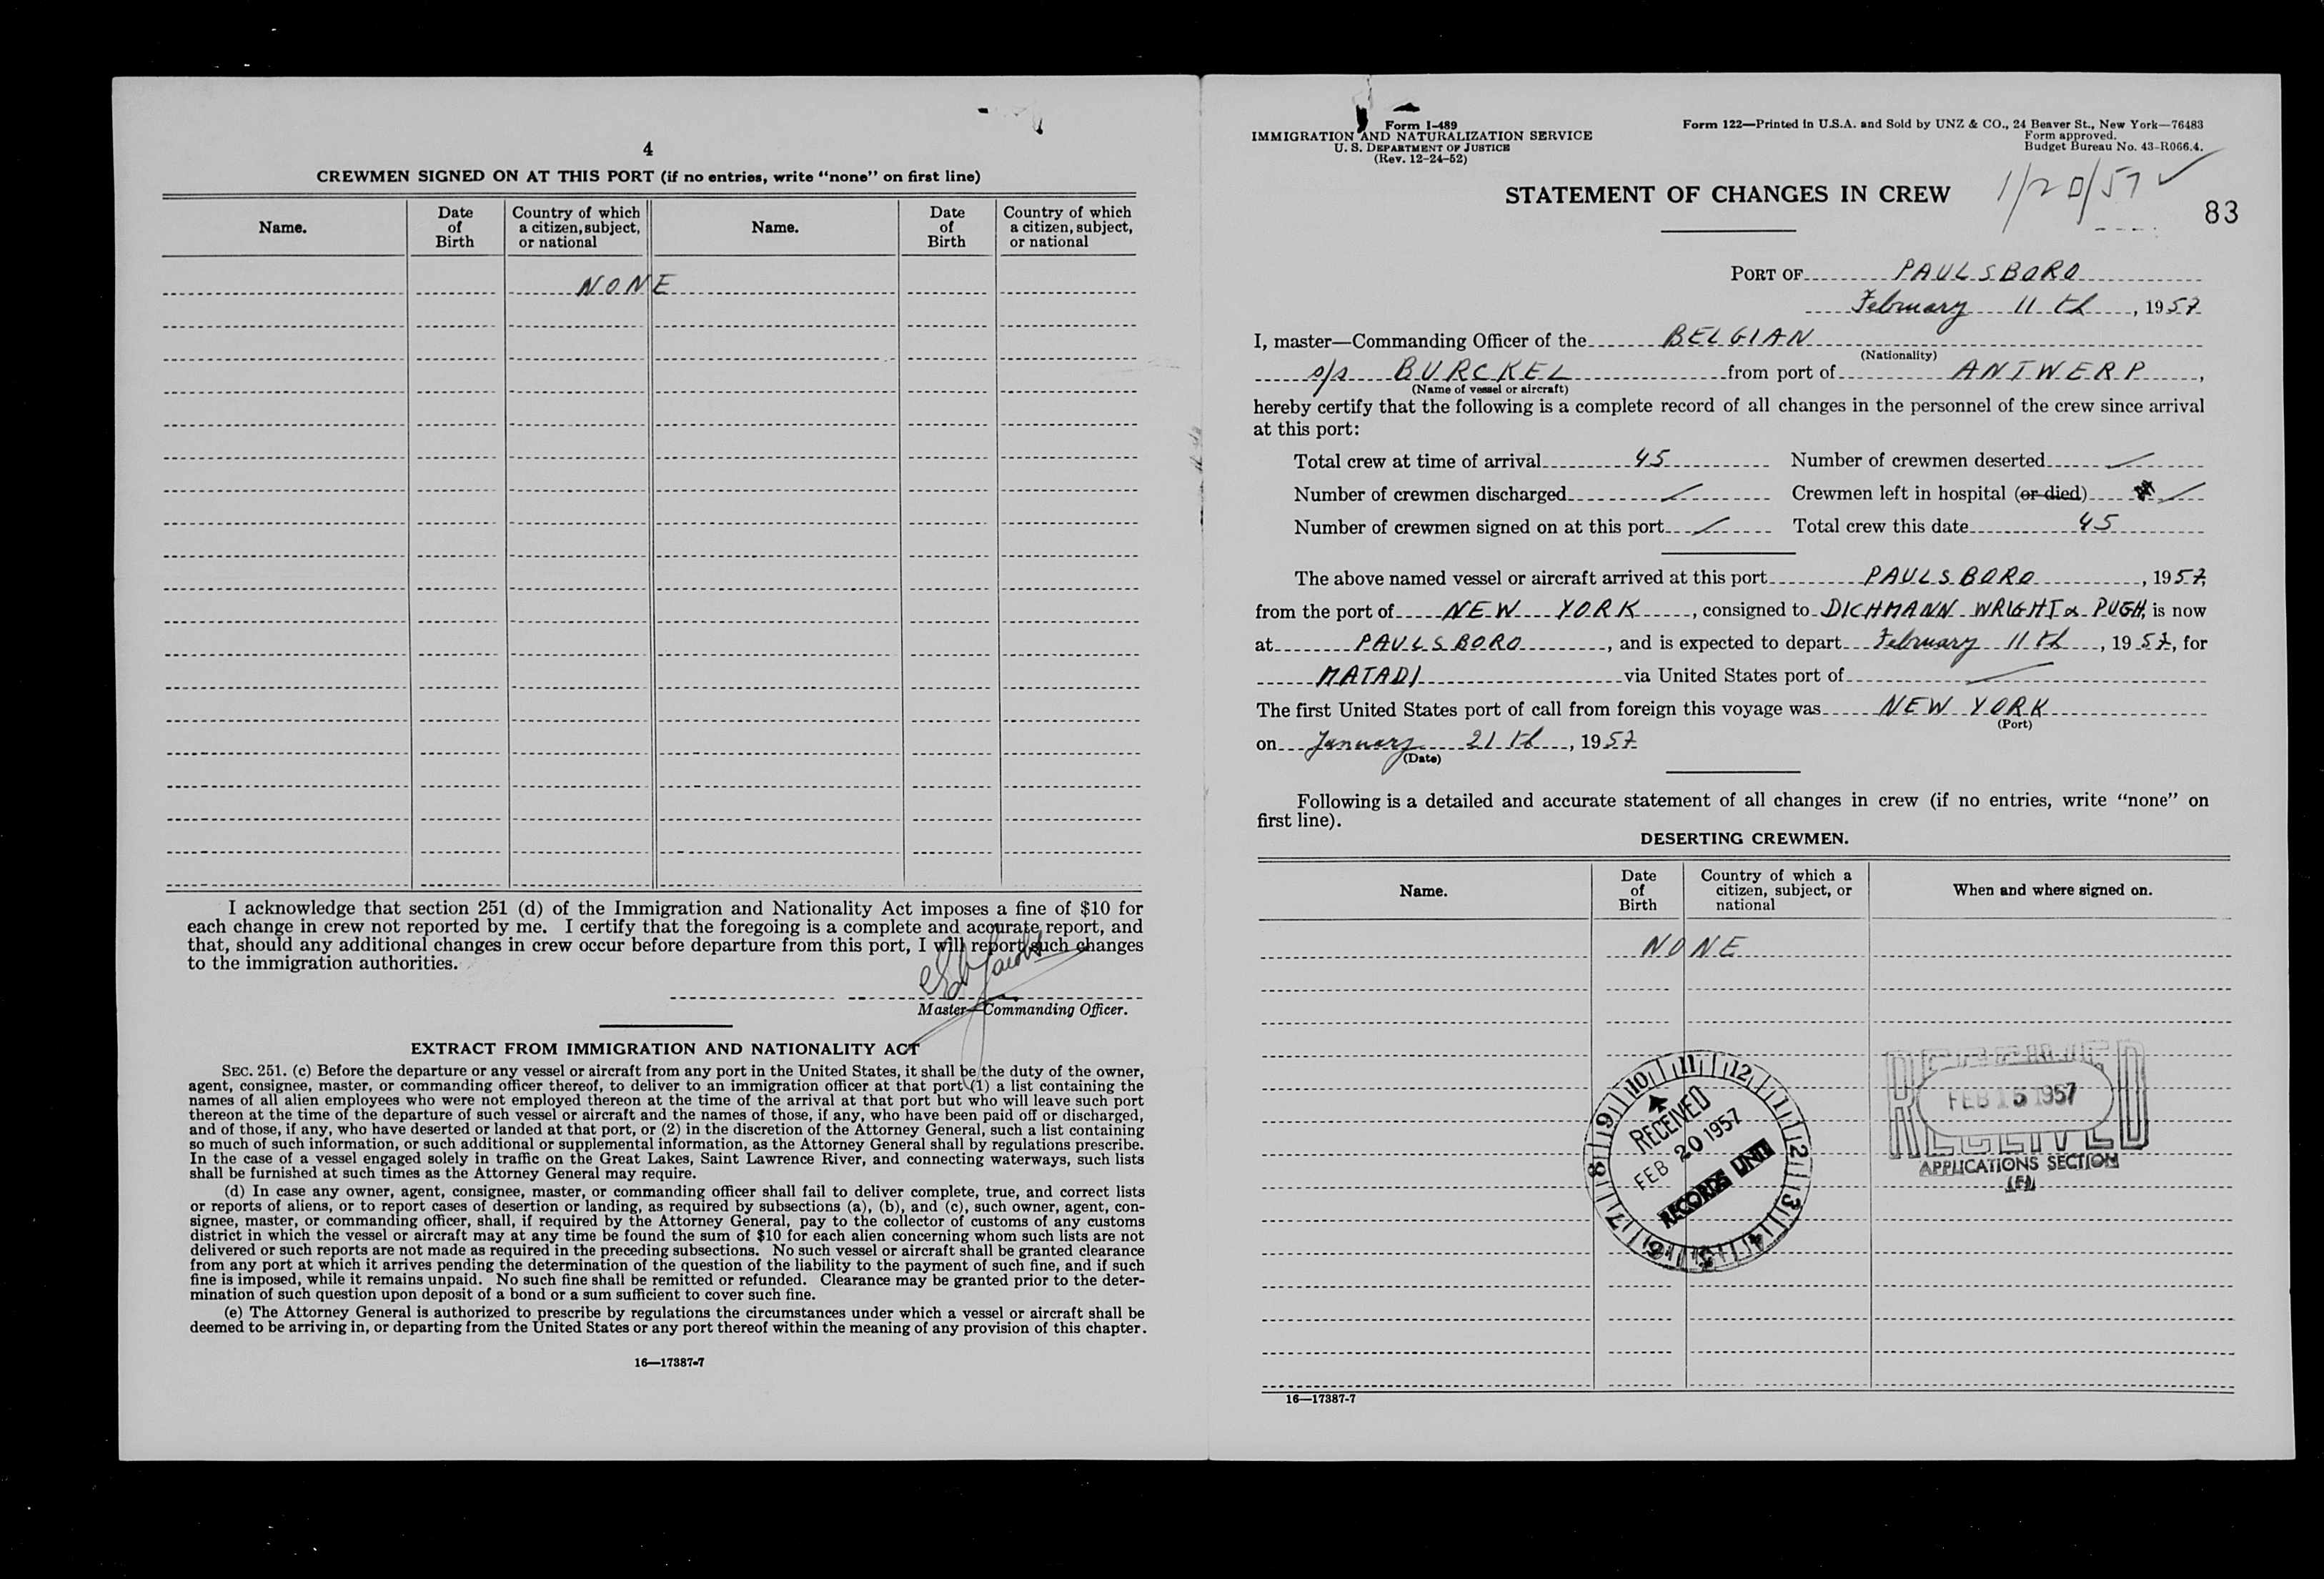 4
CREWMEN SIGNED ON AT THIS PORT (if no entries, write “none” on first line)
Name. Date of Birth Country of which a citizen, subject, or national Name. Date of Birth Country of which a citizen, subject, or national
NONE
I acknowledge that section 251 (d) of the Immigration and Nationality Act imposes a fine of $10 for
each change in crew not reported by me. I certify that the foregoing is a complete and accurate report, and
that, should any additional changes in crew occur before departure from this port, I will report such changes
to the immigration authorities.
Master—Commanding Officer.
EXTRACT FROM IMMIGRATION AND NATIONALITY ACT
SEC. 251. (c) Before the departure or any vessel or aircraft from any port in the United States, it shall be the duty of the owner,
agent, consignee, master, or commanding officer thereof, to deliver to an immigration officer at that port (1) a list containing the
names of all alien employees who were not employed thereon at the time of the arrival at that port but who will leave such port
thereon at the time of the departure of such vessel or aircraft and the names of those, if any, who have been paid off or discharged,
and of those, if any, who have deserted or landed at that port, or (2) in the discretion of the Attorney General, such a list containing
so much of such information, or such additional or supplemental information, as the Attorney General shall by regulations prescribe.
In the case of a vessel engaged solely in traffic on the Great Lakes, Saint Lawrence River, and connecting waterways, such lists
shall be furnished at such times as the Attorney General may require.
(d) In case any owner, agent, consignee, master, or commanding officer shall fail to deliver complete, true, and correct lists
or reports of aliens, or to report cases of desertion or landing, as required by subsections (a), (b), and (c), such owner, agent, con-
signee, master, or commanding officer, shall, if required by the Attorney General, pay to the collector of customs of any customs
district in which the vessel or aircraft may at any time be found the sum of $10 for each alien concerning whom such lists are not
delivered or such reports are not made as required in the preceding subsections. No such vessel or aircraft shall be granted clearance
from any port at which it arrives pending the determination of the question of the liability to the payment of such fine, and if such
fine is imposed, while it remains unpaid. No such fine shall be remitted or refunded. Clearance may be granted prior to the deter-
mination of such question upon deposit of a bond or a sum sufficient to cover such fine.
(e) The Attorney General is authorized to prescribe by regulations the circumstances under which a vessel or aircraft shall be
deemed to be arriving in, or departing from the United States or any port thereof within the meaning of any provision of this chapter.
16—17387-7
Form I-489
IMMIGRATION AND NATURALIZATION SERVICE
U. S. DEPARTMENT OF JUSTICE
(Rev. 12-24-52)
Form 122—Printed in U.S.A. and Sold by UNZ & CO., 24 Beaver St., New York—76483
Form approved.
Budget Bureau No. 43-R066.4.
STATEMENT OF CHANGES IN CREW
1/20/57 ✓
83
PORT OF PAULSBORO
February 11 th, 1957
I, master—Commanding Officer of the BELGIAN
(Nationality)
s/s BURCKEL from port of ANTWERP,
(Name of vessel or aircraft)
hereby certify that the following is a complete record of all changes in the personnel of the crew since arrival
at this port:
Total crew at time of arrival 45 Number of crewmen deserted /
Number of crewmen discharged / Crewmen left in hospital (or died) /
Number of crewmen signed on at this port / Total crew this date 45
The above named vessel or aircraft arrived at this port PAULSBORO, 1957,
from the port of NEW YORK, consigned to DICHMANN WRIGHT & PUGH, is now
at PAULSBORO, and is expected to depart February 11 th, 1957, for
MATADI via United States port of /
The first United States port of call from foreign this voyage was NEW YORK
(Port)
on January 21 th, 1957
(Date)
Following is a detailed and accurate statement of all changes in crew (if no entries, write “none” on
first line).
DESERTING CREWMEN.
Name. Date of Birth Country of which a citizen, subject, or national When and where signed on.
NONE
10 11 12 1 2 3 4 5 6 7 8 9
RECEIVED
FEB 20 1957
RECORDS UNIT
FEB 15 1957
RECEIVED
APPLICATIONS SECTION
16—17387-7